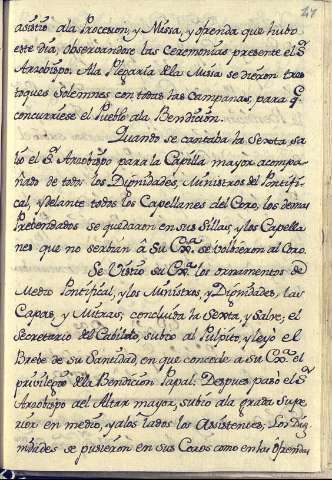 27
asistió ala Procesion, y Misa, y ofrenda que hubo
este dia, observandose las Ceremonias presente el S.r
Arzobispo. Ala Plegaria dela Misa se dieron tres
toques Solemnes con todas las campanas, para q.e
concurriese el Pueblo ala Bendicion.
Quando se cantaba la Sexta, sa
lió el S.r Arzobispo para la Capilla mayor, acompa
ñado de todos los Dignidades, Ministros del Pontifi
cal, y delante todos los Capellanes del Coro, los demas
Prebendados se quedaron en sus Sillas, y los Capella
nes que no serbian â su Ex.a se volbieron al Coro.
Se Vistio su Ex.a los ornamentos de
Medio Pontifical, y los Ministros, y Dignidades, las
Capas, y Mitras; concluida la Sexta, y Salve; el
Secretario del Cabildo, subio al Pulpito, y leyó el
Brebe de su Santidad, en que concede a su Ex.a el
privilegio dela Bendicion Papal: Despues paso el S.r
Arzobispo del Altar mayor, subio ala grada supe
rior en medio, y alos lados los Asistentes; Los Dig
nidades se pusieron en sus Coros como en las ofrendas